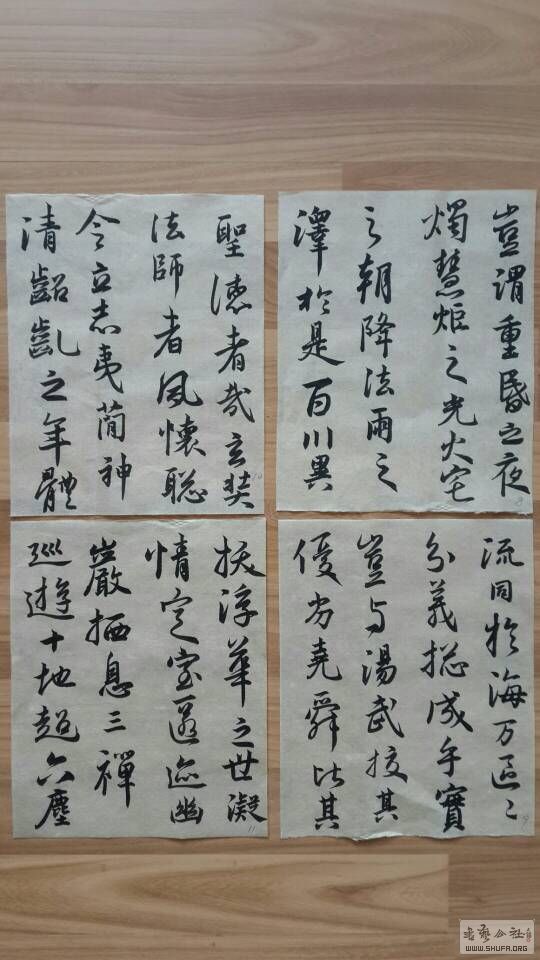 豈謂重昏之夜
燭慧炬之光火宅
之朝降法雨之
澤於是百川異
流同於海万區
分義揔成乎寶
豈与湯武挍其
優劣堯舜比其
9
聖德者哉玄奘
法師者夙懷聡
令立志夷簡神
清齠齔之年體
10
拔浮華之世凝
情定室匿迹幽
巖栖息三禪
巡遊十地超六塵
11
书艺公社
WWW.SHUFA.ORG